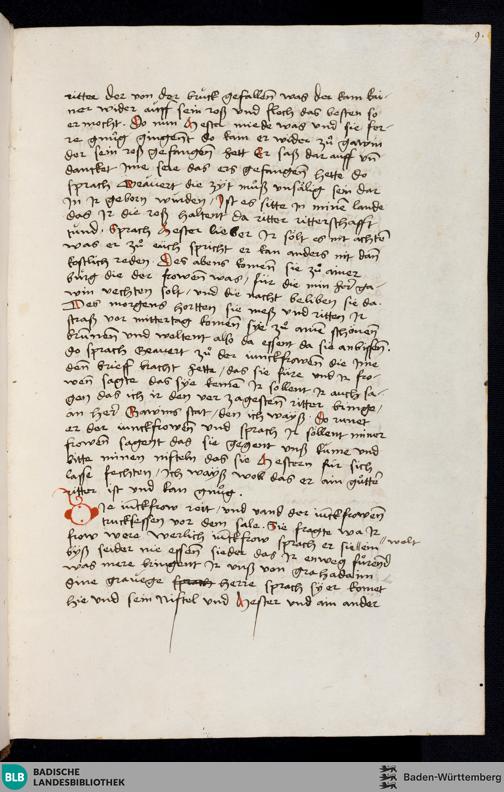 9.
ritter der von der bruck gefallen was der kam kai-
ner wider auff sein roß vnd floch das besten so
er mocht. Do nun Hester miede was vnd sie fer-
re gnůg gingent do kam er wider zů gawin
der sein roß gefangen hett Er saß dar auff vn̄
dancket ime sere das ers gefangen hette do
sprach Beauert die zyt můß vnsålig sein dar
in ir geborn wurden / Ist es sitte in minem lande
das ir die roß haltent da ritter ritterschafft
tůnd. Sprach Hester lieber Ir solt es nit achten
was er zů eůch spricht er kan anders nit dan̄
kostlich reden. Des abens komen sie zů ainer
burg die der frowen was / für die min her ga-
win vechten solt / vnd die nacht beliben sie da.
Des morgens hortten sie meß vnd ritten ir
straß vor mittertag komen sye zů aine schönen
brunnen vnd woltent also da essen da sie anbissen.
do sprach Beauert zů der iunckfrowen die ime
den brieff bracht hette / das sie füre vnd ir fro-
wen sagte das sye keme Ir sollent ir auch sa-
gen das ich ir den ver zagesten ritter bringe /
an her Gawins stat / den ich wayß. Do runet
er der iunckfrowen vnd sprach Ir sollent miner
frowen sagent das sie gegent vnß kume vnd
bitte minen nifteln das sie Hestern für sich
lasse fechten / Ich wayß wol das er ain gůtte
ritter ist vnd kan gnůg.
Die iunckfrow reit / vnd vand der iunckfrowen
truckseßen vor dem sale. Sie fragte wa ir
frow were werlich iunckfrow sprach er sie ein wolt
byß seider nie essen sieder das ir enweg fůrend
was mere bringent ir vnß von grahadann
eine grauege sprach herre sprach sy er komet
hie vnd sein Niftel vnd Hester vnd ain ander
BLB BADISCHE
LANDESBIBLIOTHEK
Baden-Württemberg